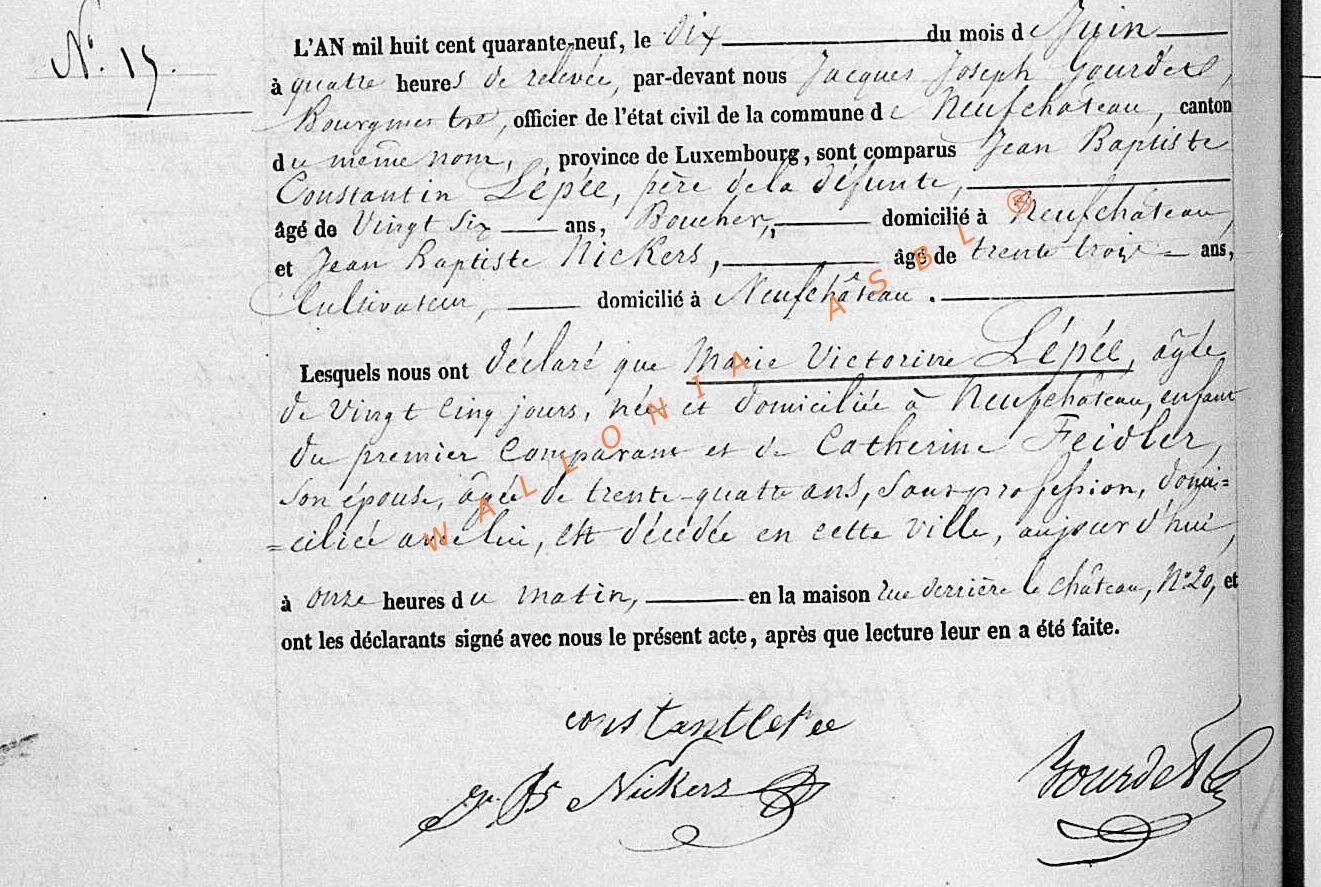 N° 19.
L'AN mil huit cent quarante-neuf, le dix du mois de Juin
à quatre heures de relevée, par-devant nous Jacques Joseph Gourdet,
Bourgmestre, officier de l'état civil de la commune de Neufchâteau, canton
du même nom, province de Luxembourg, sont comparus Jean Baptiste
Constantin Lépée, père de la défunte,
âgé de Vingt Six ans, Boucher, domicilié à Neufchâteau,
et Jean Baptiste Nickers, âgé de trente trois ans,
Cultivateur, domicilié à Neufchâteau.
Lesquels nous ont déclaré que Marie Victorine Lépée, âgée
de Vingt Cinq jours, née et domiciliée à Neufchâteau, enfant
du premier Comparant et de Catherine Feidler,
son épouse, âgée de trente-quatre ans, sans profession, domi=
=ciliée avec lui, est décédée en cette ville, aujourd'hui,
à onze heures du matin, en la maison rue derrière le château, N° 20, et
ont les déclarants signé avec nous le présent acte, après que lecture leur en a été faite.
constant lepee
Jn Bte Nickers
Gourdet
WALLONIA ASBL ®